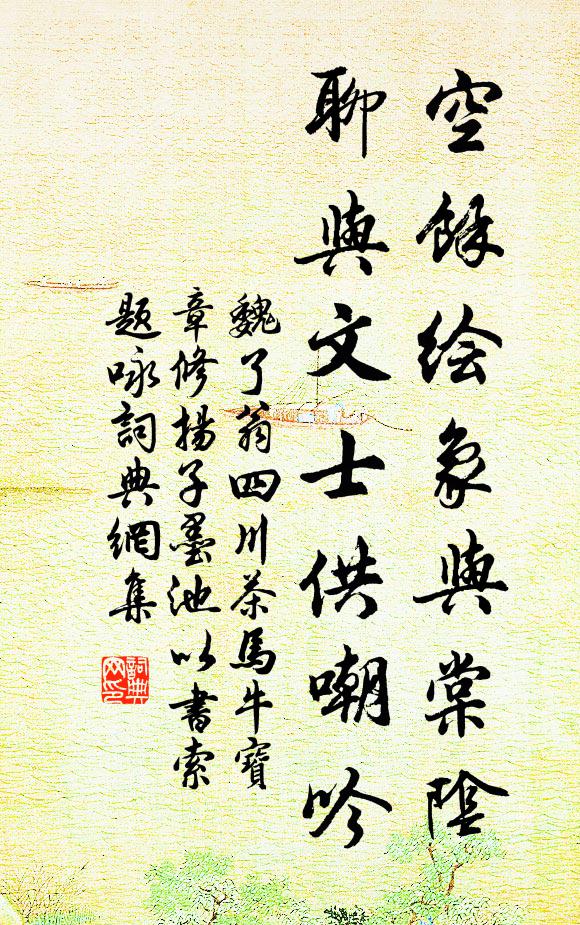 空餘绘象與棠陰
聊與文士供嘲吟
魏了翁四川茶馬牛寶
章修揚子墨池以書索
题咏詞典網集
詞典网印